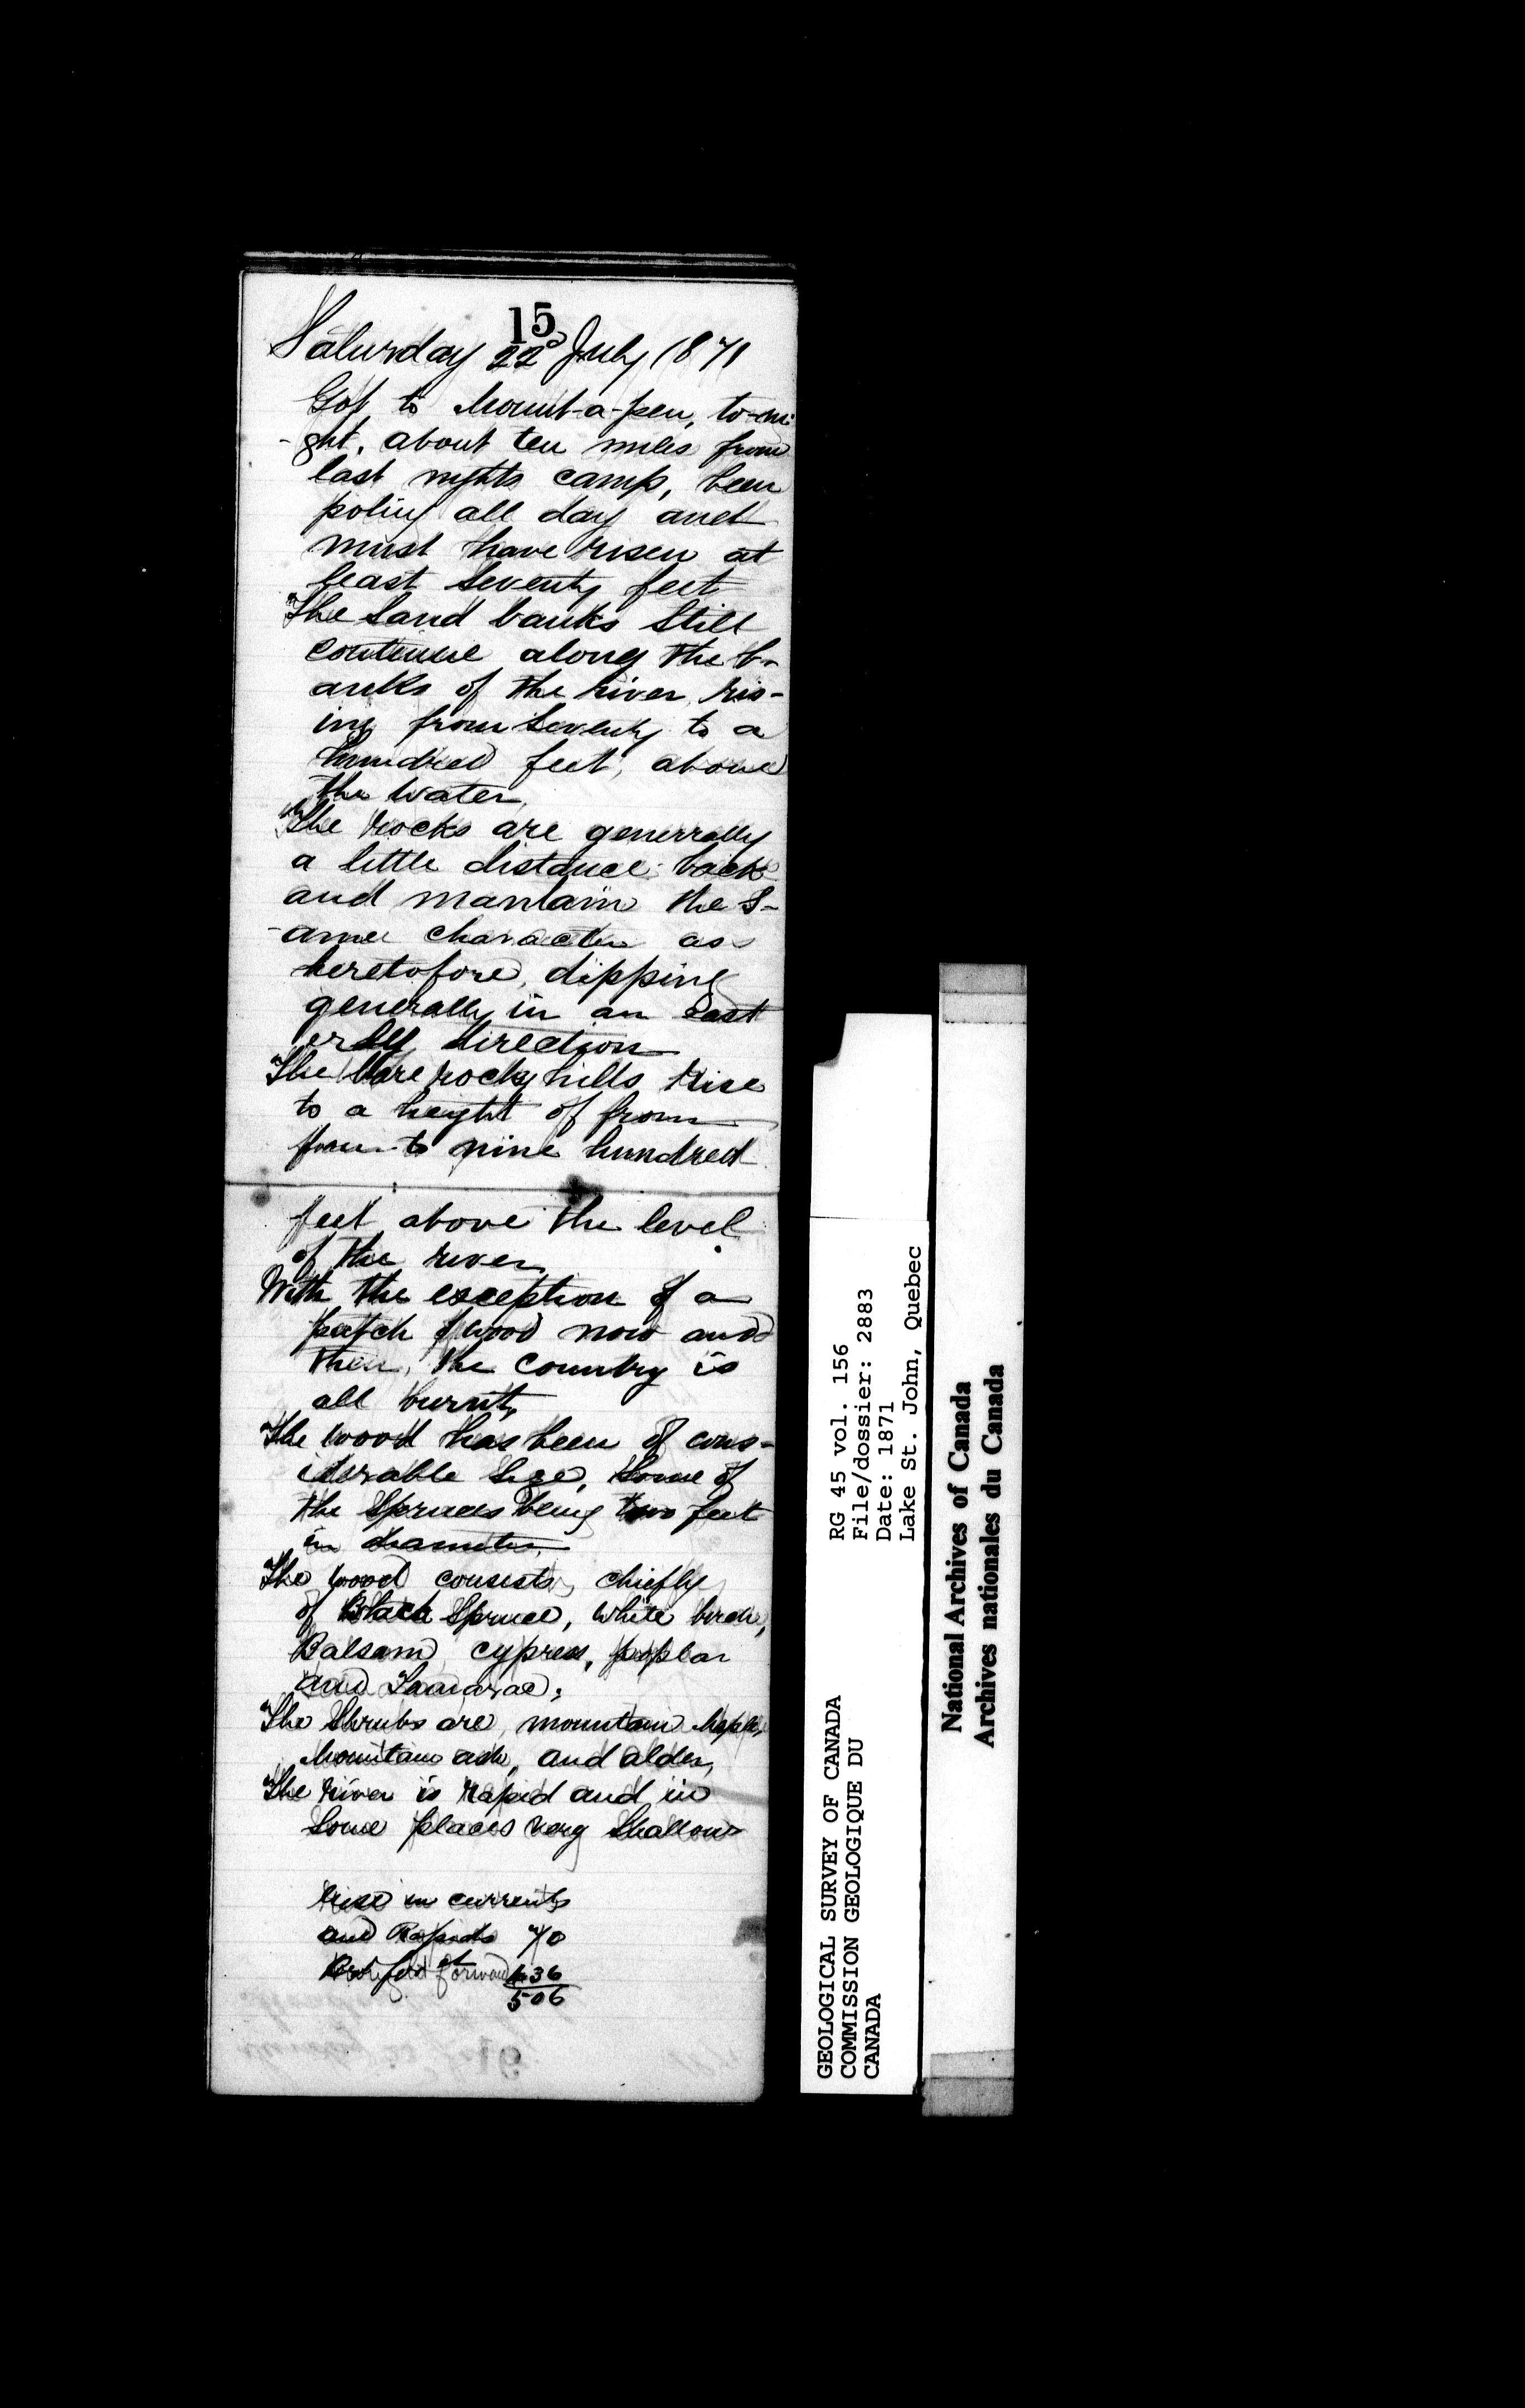 15
Saturday 22d July 1871
Got to Mount-a-pen, to-ni-
-ght, about ten miles from
last nights camp, been
poling all day and
must have risen at
least Seventy feet
The Sand banks Still
continue along the b-
anks of the river, ris-
ing from Seventy to a
hundred feet, above
the water.
The rocks are generrally
a little distance back
and mantain the S-
-ame character as
heretofore, dipping
generally in an East
erly direction
The bare rocky hills rise
to a height of from
four to nine hundred
feet above the level
of the river.
With the exception of a
patch of wood now and
then, the country is
all burnt,
The wood has been of cons-
iderable Size, Some of
the Spruces being two feet
in diameter.
The wood consists, chiefly
of Black Spruce, White birch,
Balsam, cypress, poplar
and Tamarac;
The Shrubs are, mountain Maple,
Mountain ash, and alder,
The river is rapid and in
Some places very Shallow
rise in currents
and Rapids 70
forward 436
506
RG 45 vol. 156
File/dossier: 2883
Date: 1871
Lake St. John, Quebec
GEOLOGICAL SURVEY OF CANADA
COMMISSION GEOLOGIQUE DU
CANADA
National Archives of Canada
Archives nationales du Canada